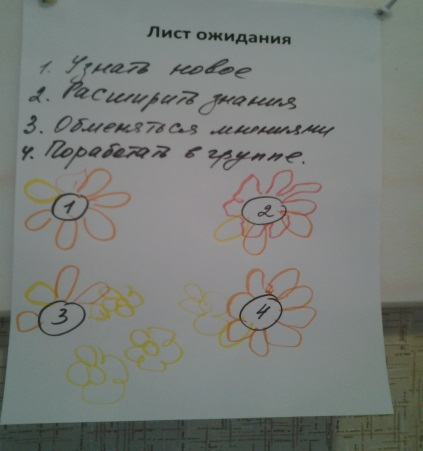 Лист ожидания
1. Узнать новое
2. Расширить знания
3. Обменяться мнениями
4. Поработать в группе.
1
2
3
4